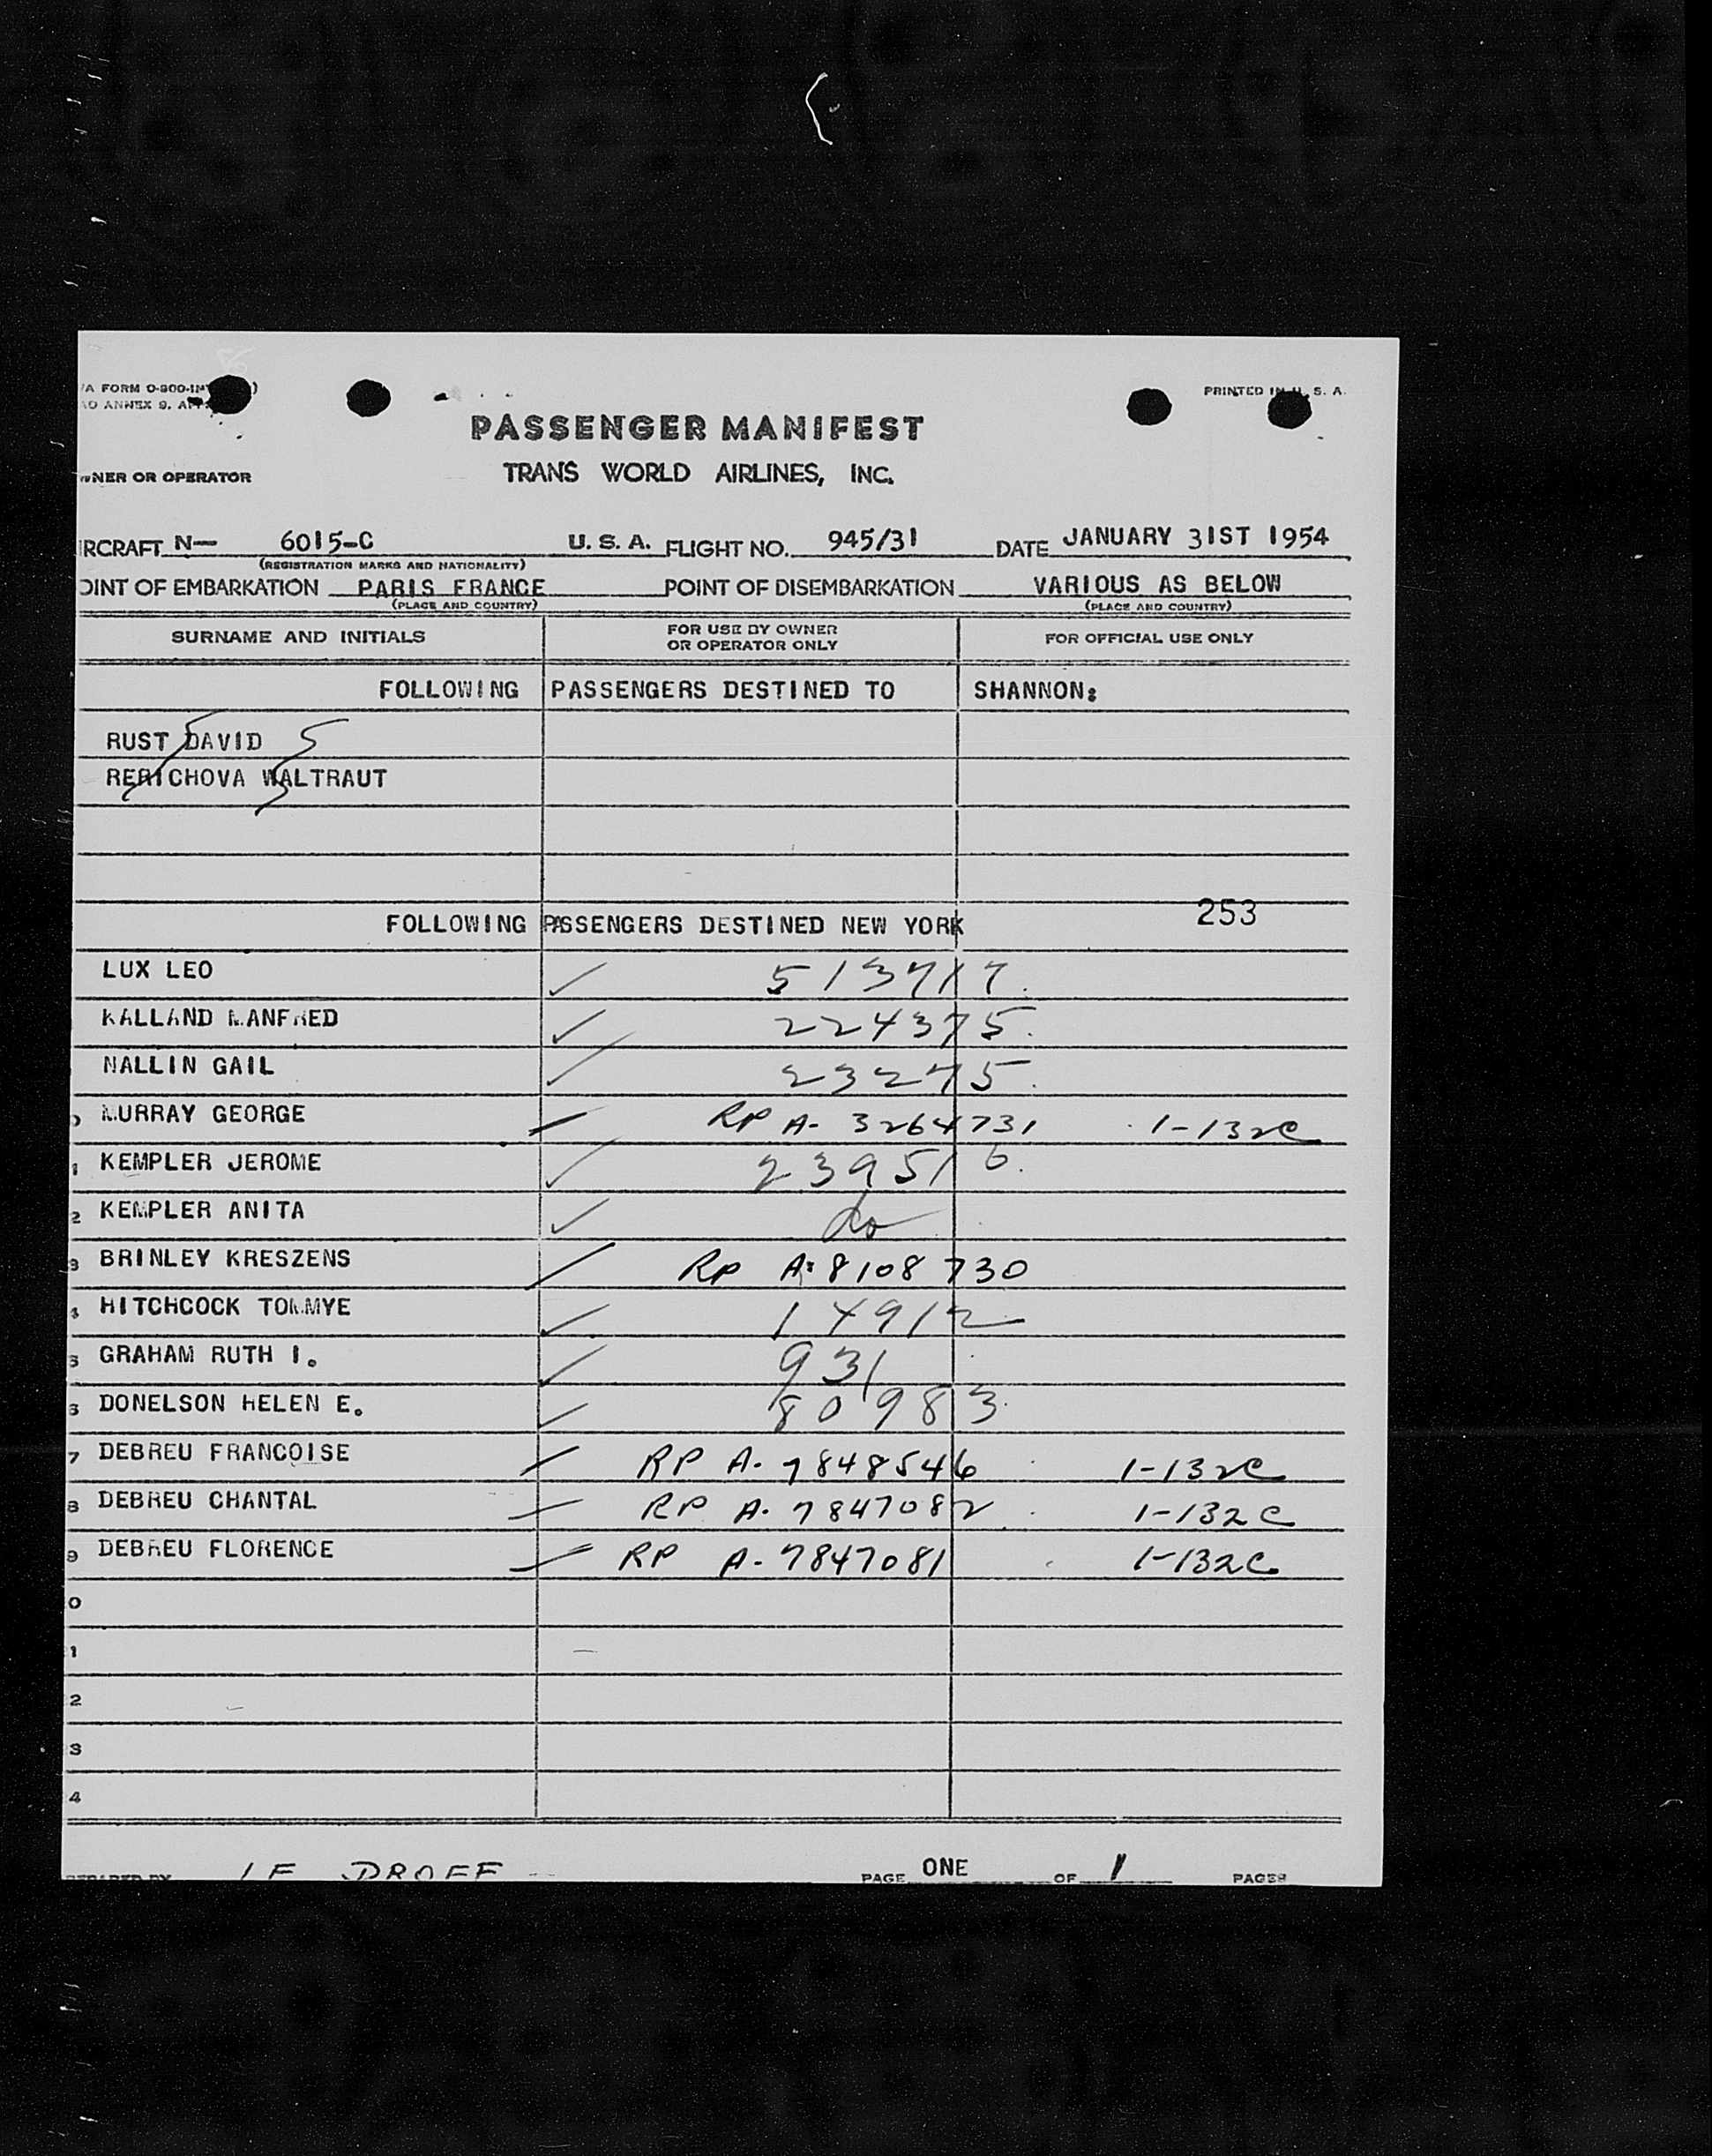 PRINTED IN U. S. A.
PASSENGER MANIFEST
WNER OR OPERATOR TRANS WORLD AIRLINES, INC.
IRCRAFT N— 6015-C U. S. A. FLIGHT NO. 945/31 DATE JANUARY 31ST 1954
(REGISTRATION MARKS AND NATIONALITY)
OINT OF EMBARKATION PARIS FRANCE POINT OF DISEMBARKATION VARIOUS AS BELOW
(PLACE AND COUNTRY) (PLACE AND COUNTRY)
SURNAME AND INITIALS FOR USE BY OWNER OR OPERATOR ONLY FOR OFFICIAL USE ONLY
FOLLOWING PASSENGERS DESTINED TO SHANNON:
RUST DAVID
RERICHOVA WALTRAUT
253
FOLLOWING PASSENGERS DESTINED NEW YORK
LUX LEO ✓ 513717.
KALLAND MANFRED ✓ 224375.
NALLIN GAIL ✓ 23275.
MURRAY GEORGE RP A- 3264731 1-132C
1 KEMPLER JEROME ✓ 239516.
2 KEMPLER ANITA ✓ do
3 BRINLEY KRESZENS RP A: 8108730
4 HITCHCOCK TOMMYE ✓ 14912
5 GRAHAM RUTH I. ✓ 931
6 DONELSON HELEN E. ✓ 80983.
7 DEBREU FRANCOISE RP A- 7848546 1-132C
8 DEBREU CHANTAL RP A- 7847082 1-132C
9 DEBREU FLORENCE RP A-7847081 1-132C
0
1
2
3
4
PAGE ONE OF 1 PAGES